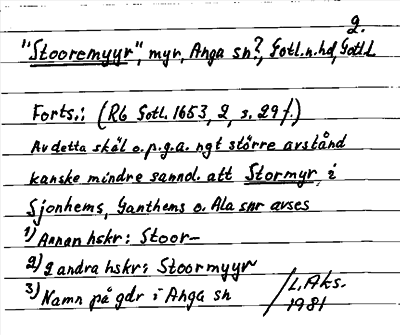 2.
"Stooremyyr", myr, Anga sn?, Gotl.n.hd, Gotl.l
Forts.: (Rb Gotl. 1653, 2, s. 29 f.)
Av detta skäl o. p.g.a. ngt större avstånd
kanske mindre sannol. att Stormyr i
Sjonhems, Ganthems o. Ala snr avses
1) Annan hskr: Stoor-
2) 2 andra hskr: Stoormyyr
3) Namn på gdr i Anga sn
/L.Aks.
1981